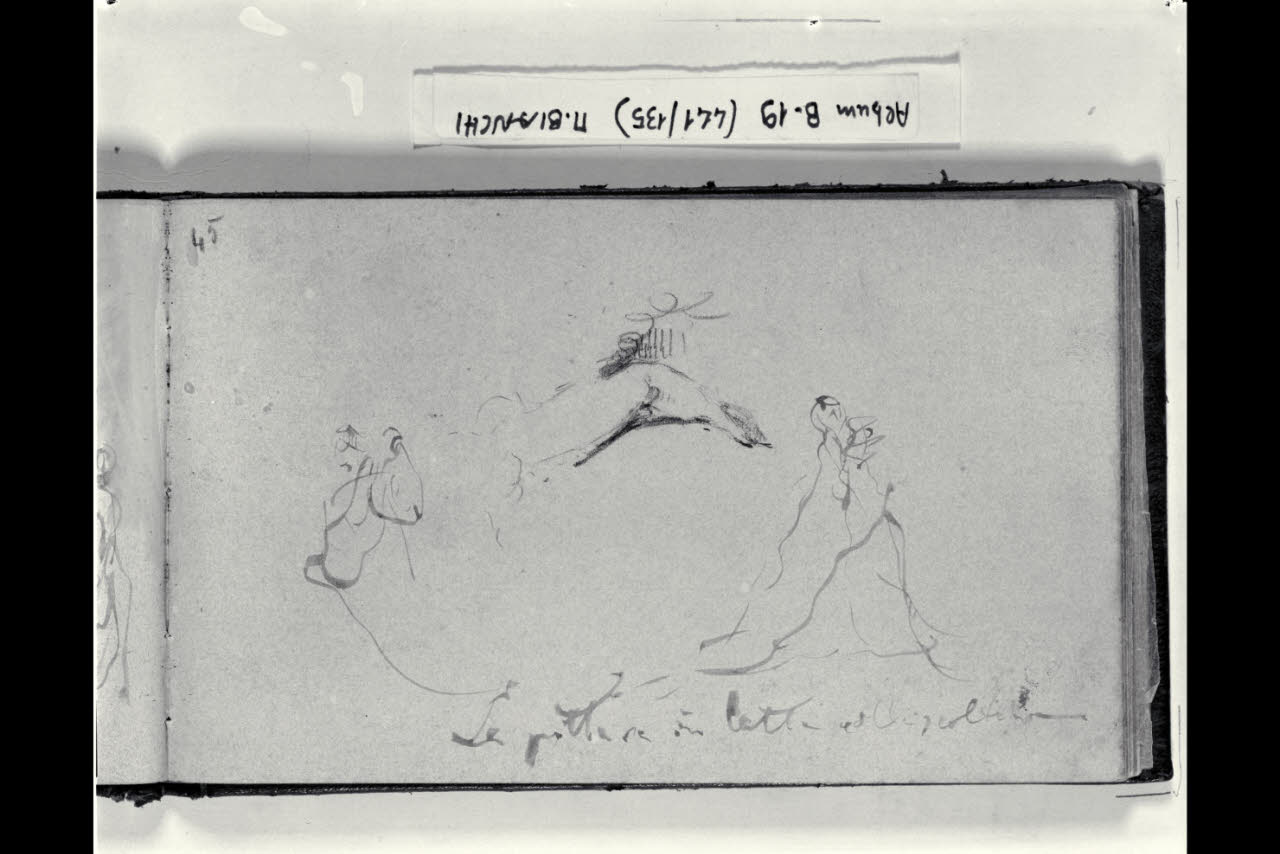 Album B-19 (441/135) M.BIANCHI
45
La pittura in lotta